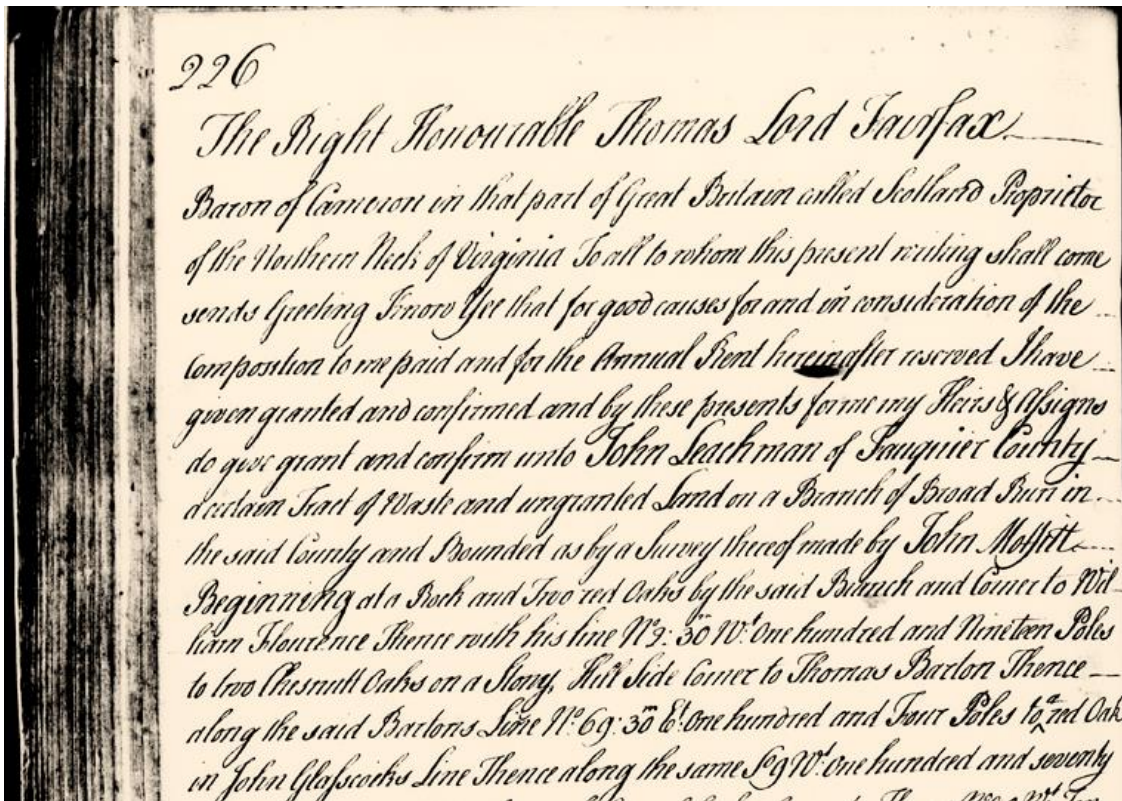 226
The Right Honourable Thomas Lord Fairfax
Baron of Cameron in that part of Great Britain called Scotland Proprietor
of the Northern Neck of Virginia To all to whom this present writing shall come
sends Greeting Know Yee that for good causes for and in consideration of the
Composition to me paid and for the Annual Rent hereinafter reserved I have
given granted and confirmed and by these presents for me my Heirs & Assigns
do give grant and confirm unto John Leachman of Fauquier County
a certain Tract of Waste and ungranted Land on a Branch of Broad Run in
the said County and Bounded as by a Survey thereof made by John Moffitt
Beginning at a Rock and Two red Oaks by the said Branch and Corner to Wil-
liam Flourence Thence with his line No. 2: 30m Wt. One hundred and Nineteen Poles
to two Chesnutt Oaks on a Stony Hill Side Corner to Thomas Barton Thence
along the said Bartons Line No. 69: 30m Et. One hundred and Four Poles to a red Oak
in John Glasscocks Line Thence along the same So 9 Wt. One hundred and seventy